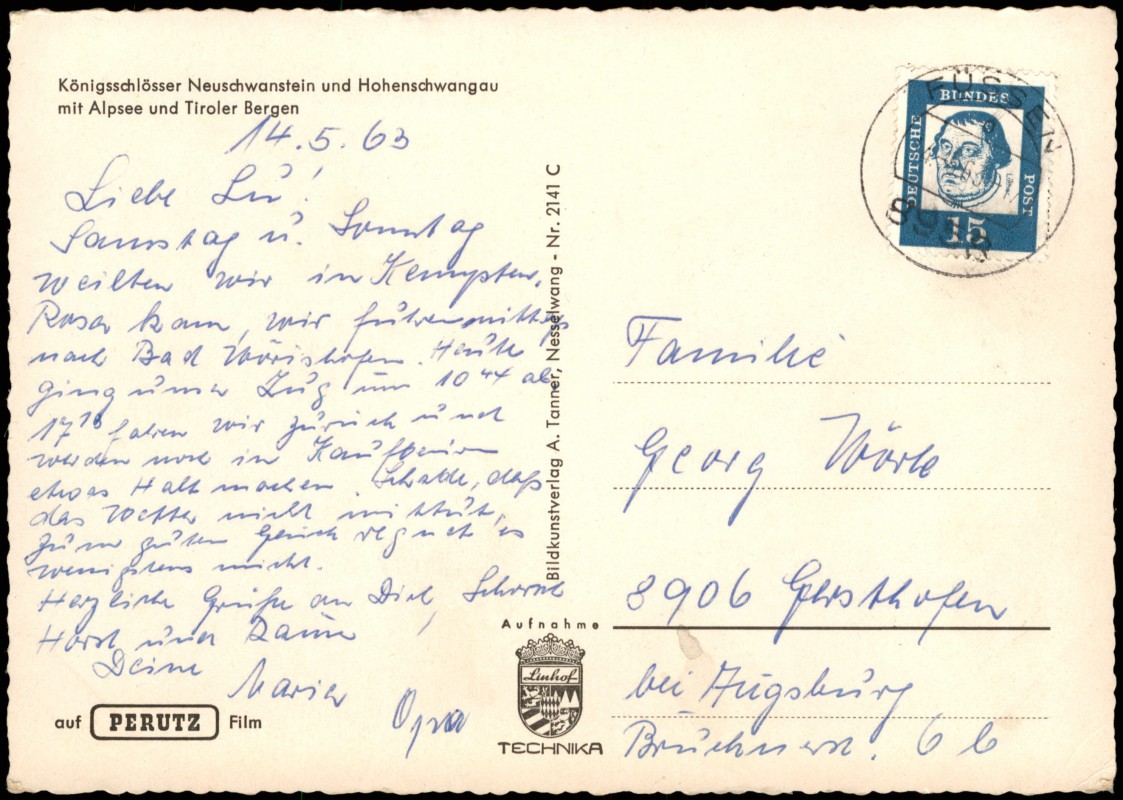 Königsschlösser Neuschwanstein und Hohenschwangau
mit Alpsee und Tiroler Bergen
14.5.63
Liebe Lu!
Samstag u. Sonntag
weilten wir in Kempten.
Rosa kam, wir fuhren mittags
nach Bad Wörishofen. Heute
ging unser Zug um 10⁴⁴ ab
17¹⁸ fahren wir zurück und
werden noch in Kaufbeuren
etwas Halt machen. Schade, daß
das Wetter nicht mittut,
zum guten Glück regnet es
wenigstens nicht.
Herzliche Grüße an Dich, Schorsch
Horst und
Deine
Maria
Opa
auf PERUTZ Film
Bildkunstverlag A. Tanner, Nesselwang - Nr. 2141 C
Aufnahme
Linhof
TECHNIKA
FÜSSEN
8958
DEUTSCHE
BUNDES
POST
15
Familie
Georg Wörle
8906 Gersthofen
bei Augsburg
Brucknerstr. 6 b